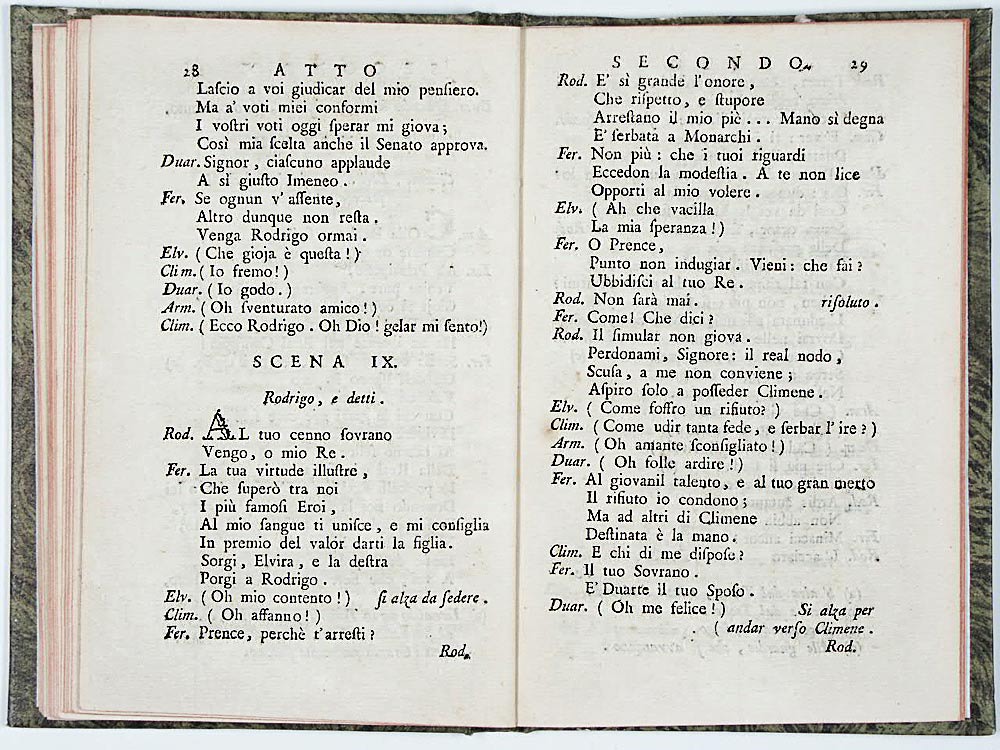 28 ATTO
Laſcio a voi giudicar del mio penſiero.
Ma a' voti miei conformi
I voſtri voti oggi ſperar mi giova;
Così mia ſcelta anche il Senato approva.
Duar. Signor, ciaſcuno applaude
A sì giuſto Imeneo.
Fer. Se ognun v' aſſente,
Altro dunque non reſta.
Venga Rodrigo ormai.
Elv. (Che gioja è queſta!)
Clim. (Io fremo!)
Duar. (Io godo.)
Arm. (Oh ſventurato amico!)
Clim. (Ecco Rodrigo. Oh Dio! gelar mi ſento!)
SCENA IX.
Rodrigo, e detti.
Rod. AL tuo cenno ſovrano
Vengo, o mio Re.
Fer. La tua virtude illuſtre,
Che ſuperò tra noi
I più famoſi Eroi,
Al mio ſangue ti uniſce, e mi conſiglia
In premio del valor darti la figlia.
Sorgi, Elvira, e la deſtra
Porgi a Rodrigo.
Elv. (Oh mio contento!) ſi alza da ſedere.
Clim. (Oh affanno!)
Fer. Prence, perchè t'arreſti?
Rod.
SECONDO. 29
Rod. E' sì grande l'onore,
Che riſpetto, e ſtupore
Arreſtano il mio piè... Mano sì degna
E' ſerbata a Monarchi.
Fer. Non più: che i tuoi riguardi
Eccedon la modeſtia. A te non lice
Opporti al mio volere.
Elv. (Ah che vacilla
La mia ſperanza!)
Fer. O Prence,
Punto non indugiar. Vieni: che fai?
Ubbidiſci al tuo Re.
Rod. Non ſarà mai. riſoluto.
Fer. Come! Che dici?
Rod. Il ſimular non giova.
Perdonami, Signore: il real nodo,
Scuſa, a me non conviene;
Aſpiro ſolo a poſſeder Climene.
Elv. (Come ſoffro un rifiuto?)
Clim. (Come udir tanta fede, e ſerbar l'ire?)
Arm. (Oh amante ſconſigliato!)
Duar. (Oh folle ardire!)
Fer. Al giovanil talento, e al tuo gran merto
Il rifiuto io condono;
Ma ad altri di Climene
Deſtinata è la mano.
Clim. E chi di me diſpoſe?
Fer. Il tuo Sovrano.
E' Duarte il tuo Spoſo.
Duar. (Oh me felice!) Si alza per
(andar verſo Climene.
Rod.